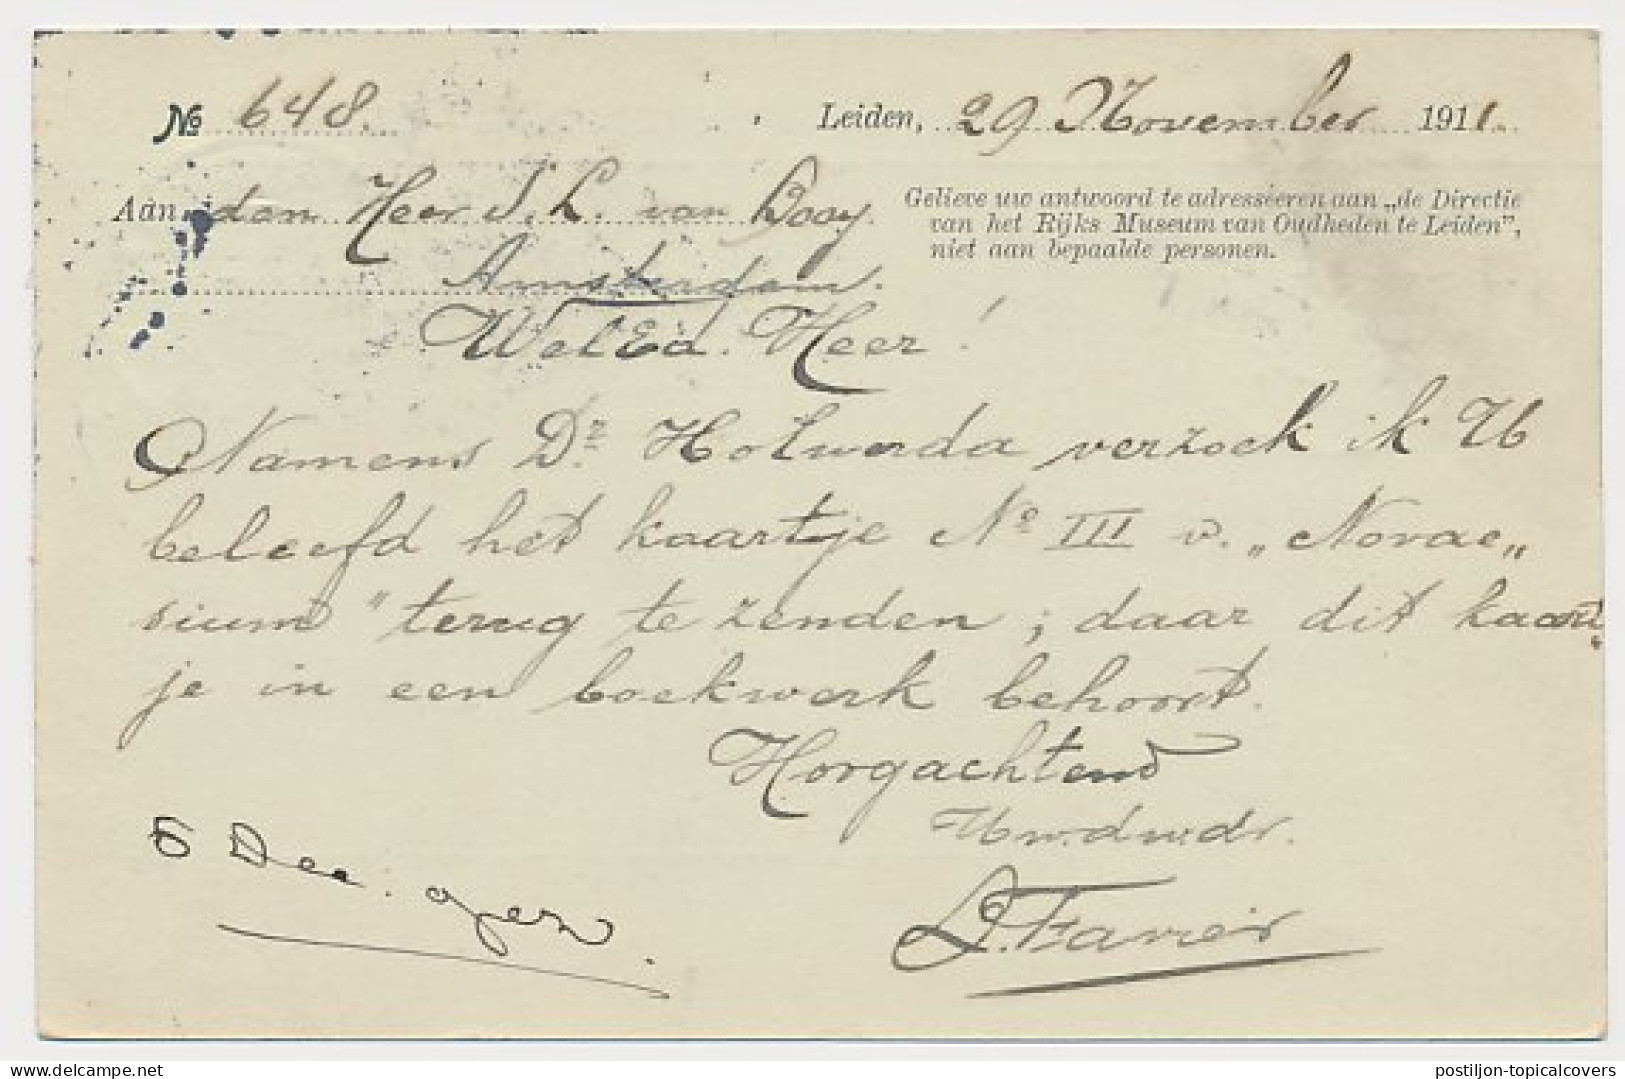 No 648. Leiden, 29 November 1911.
Aan den Heer J. L. van Booy.
Amsterdam.
Gelieve uw antwoord te adresseeren aan „de Directie
van het Rijks Museum van Oudheden te Leiden”,
niet aan bepaalde personen.
WelEd. Heer!
Namens Dr. Holwerda verzoek ik U
beleefd het kaartje No III v. „Novae„
sium" terug te zenden; daar dit kaart„
je in een boekwerk behoort.
Horgachtend
Uw.dw.dr.
5 Dec.
postiljon-topicalcovers